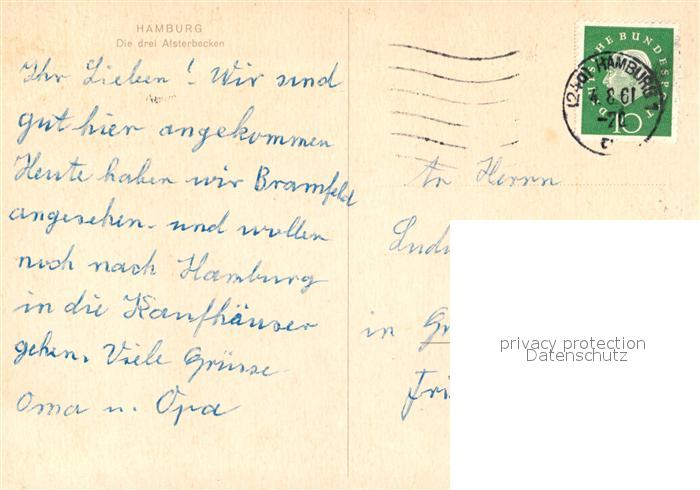 HAMBURG
Die drei Alsterbecken
Ihr Lieben! Wir sind
gut hier angekommen
Heute haben wir Bramfeld
angesehen. und wollen
noch nach Hamburg
in die Kaufhäuser
gehen. Viele Grüsse
Oma u. Opa
DEUTSCHE BUNDESPOST
10
(24a) HAMBURG 1
4.8.61
-20
An Herrn
Ludw
in Gr
Fri
privacy protection
Datenschutz